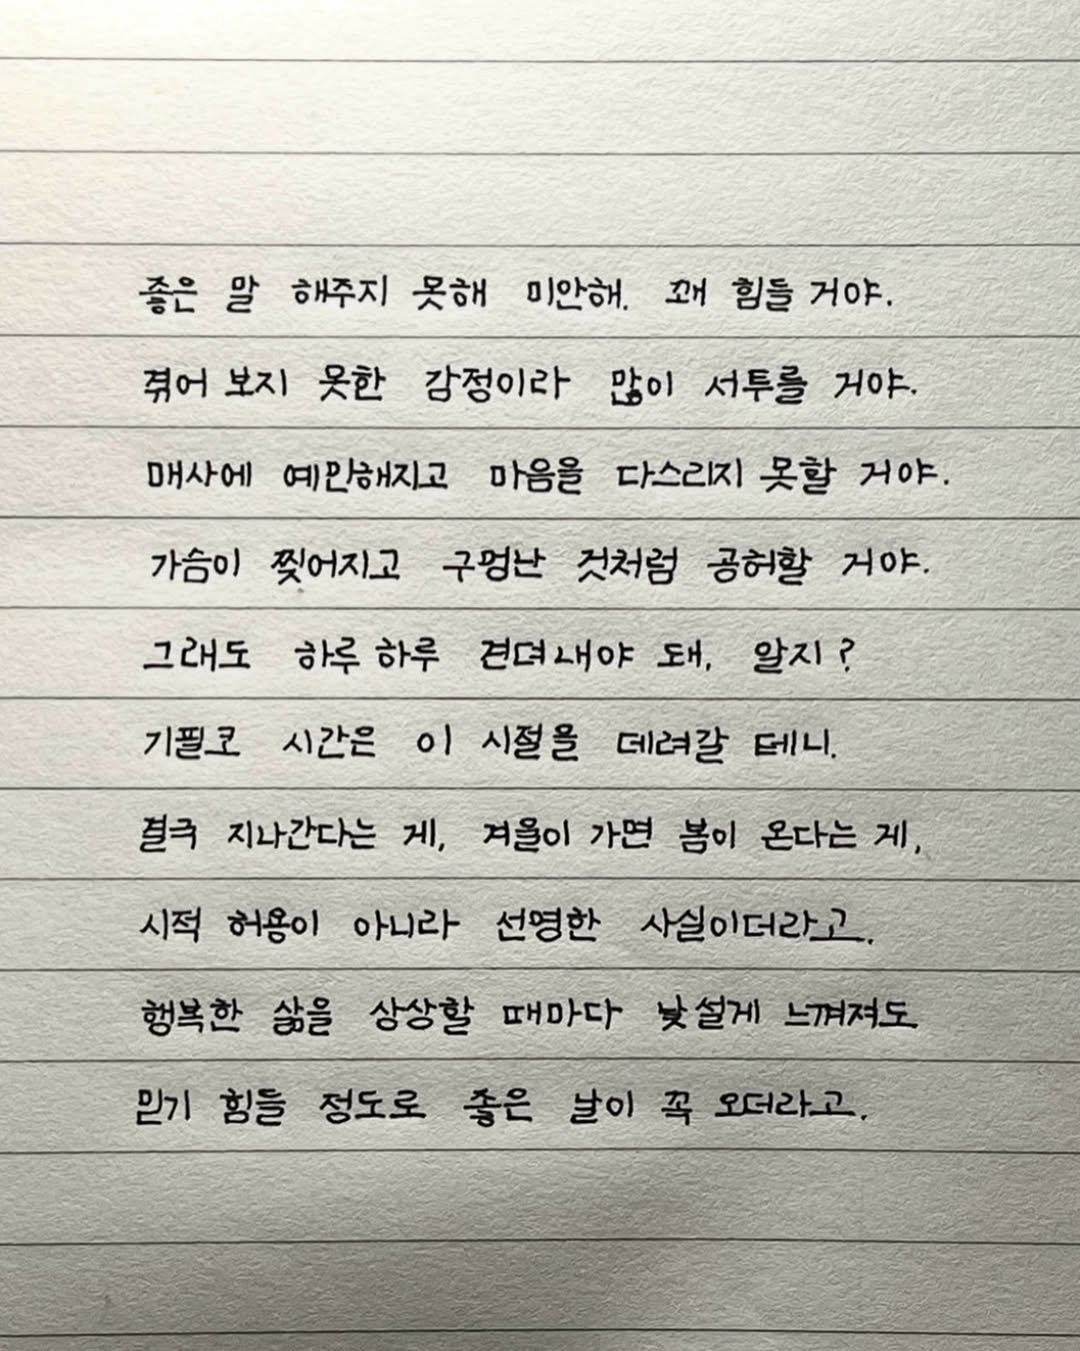 좋은 말 해주지 못해 미안해. 꽤 힘들 거야.
겪어 보지 못한 감정이라 많이 서투를 거야.
매사에 예민해지고 마음을 다스리지 못할 거야.
가슴이 찢어지고 구멍난 것처럼 공허할 거야.
그래도 하루 하루 견뎌내야 돼. 알지?
기필코 시간은 이 시절을 데려갈 테니.
결국 지나간다는 게, 겨울이 가면 봄이 온다는 게,
시적 허용이 아니라 선명한 사실이더라고.
행복한 삶을 상상할 때마다 낯설게 느껴져도
믿기 힘들 정도로 좋은 날이 꼭 오더라고.